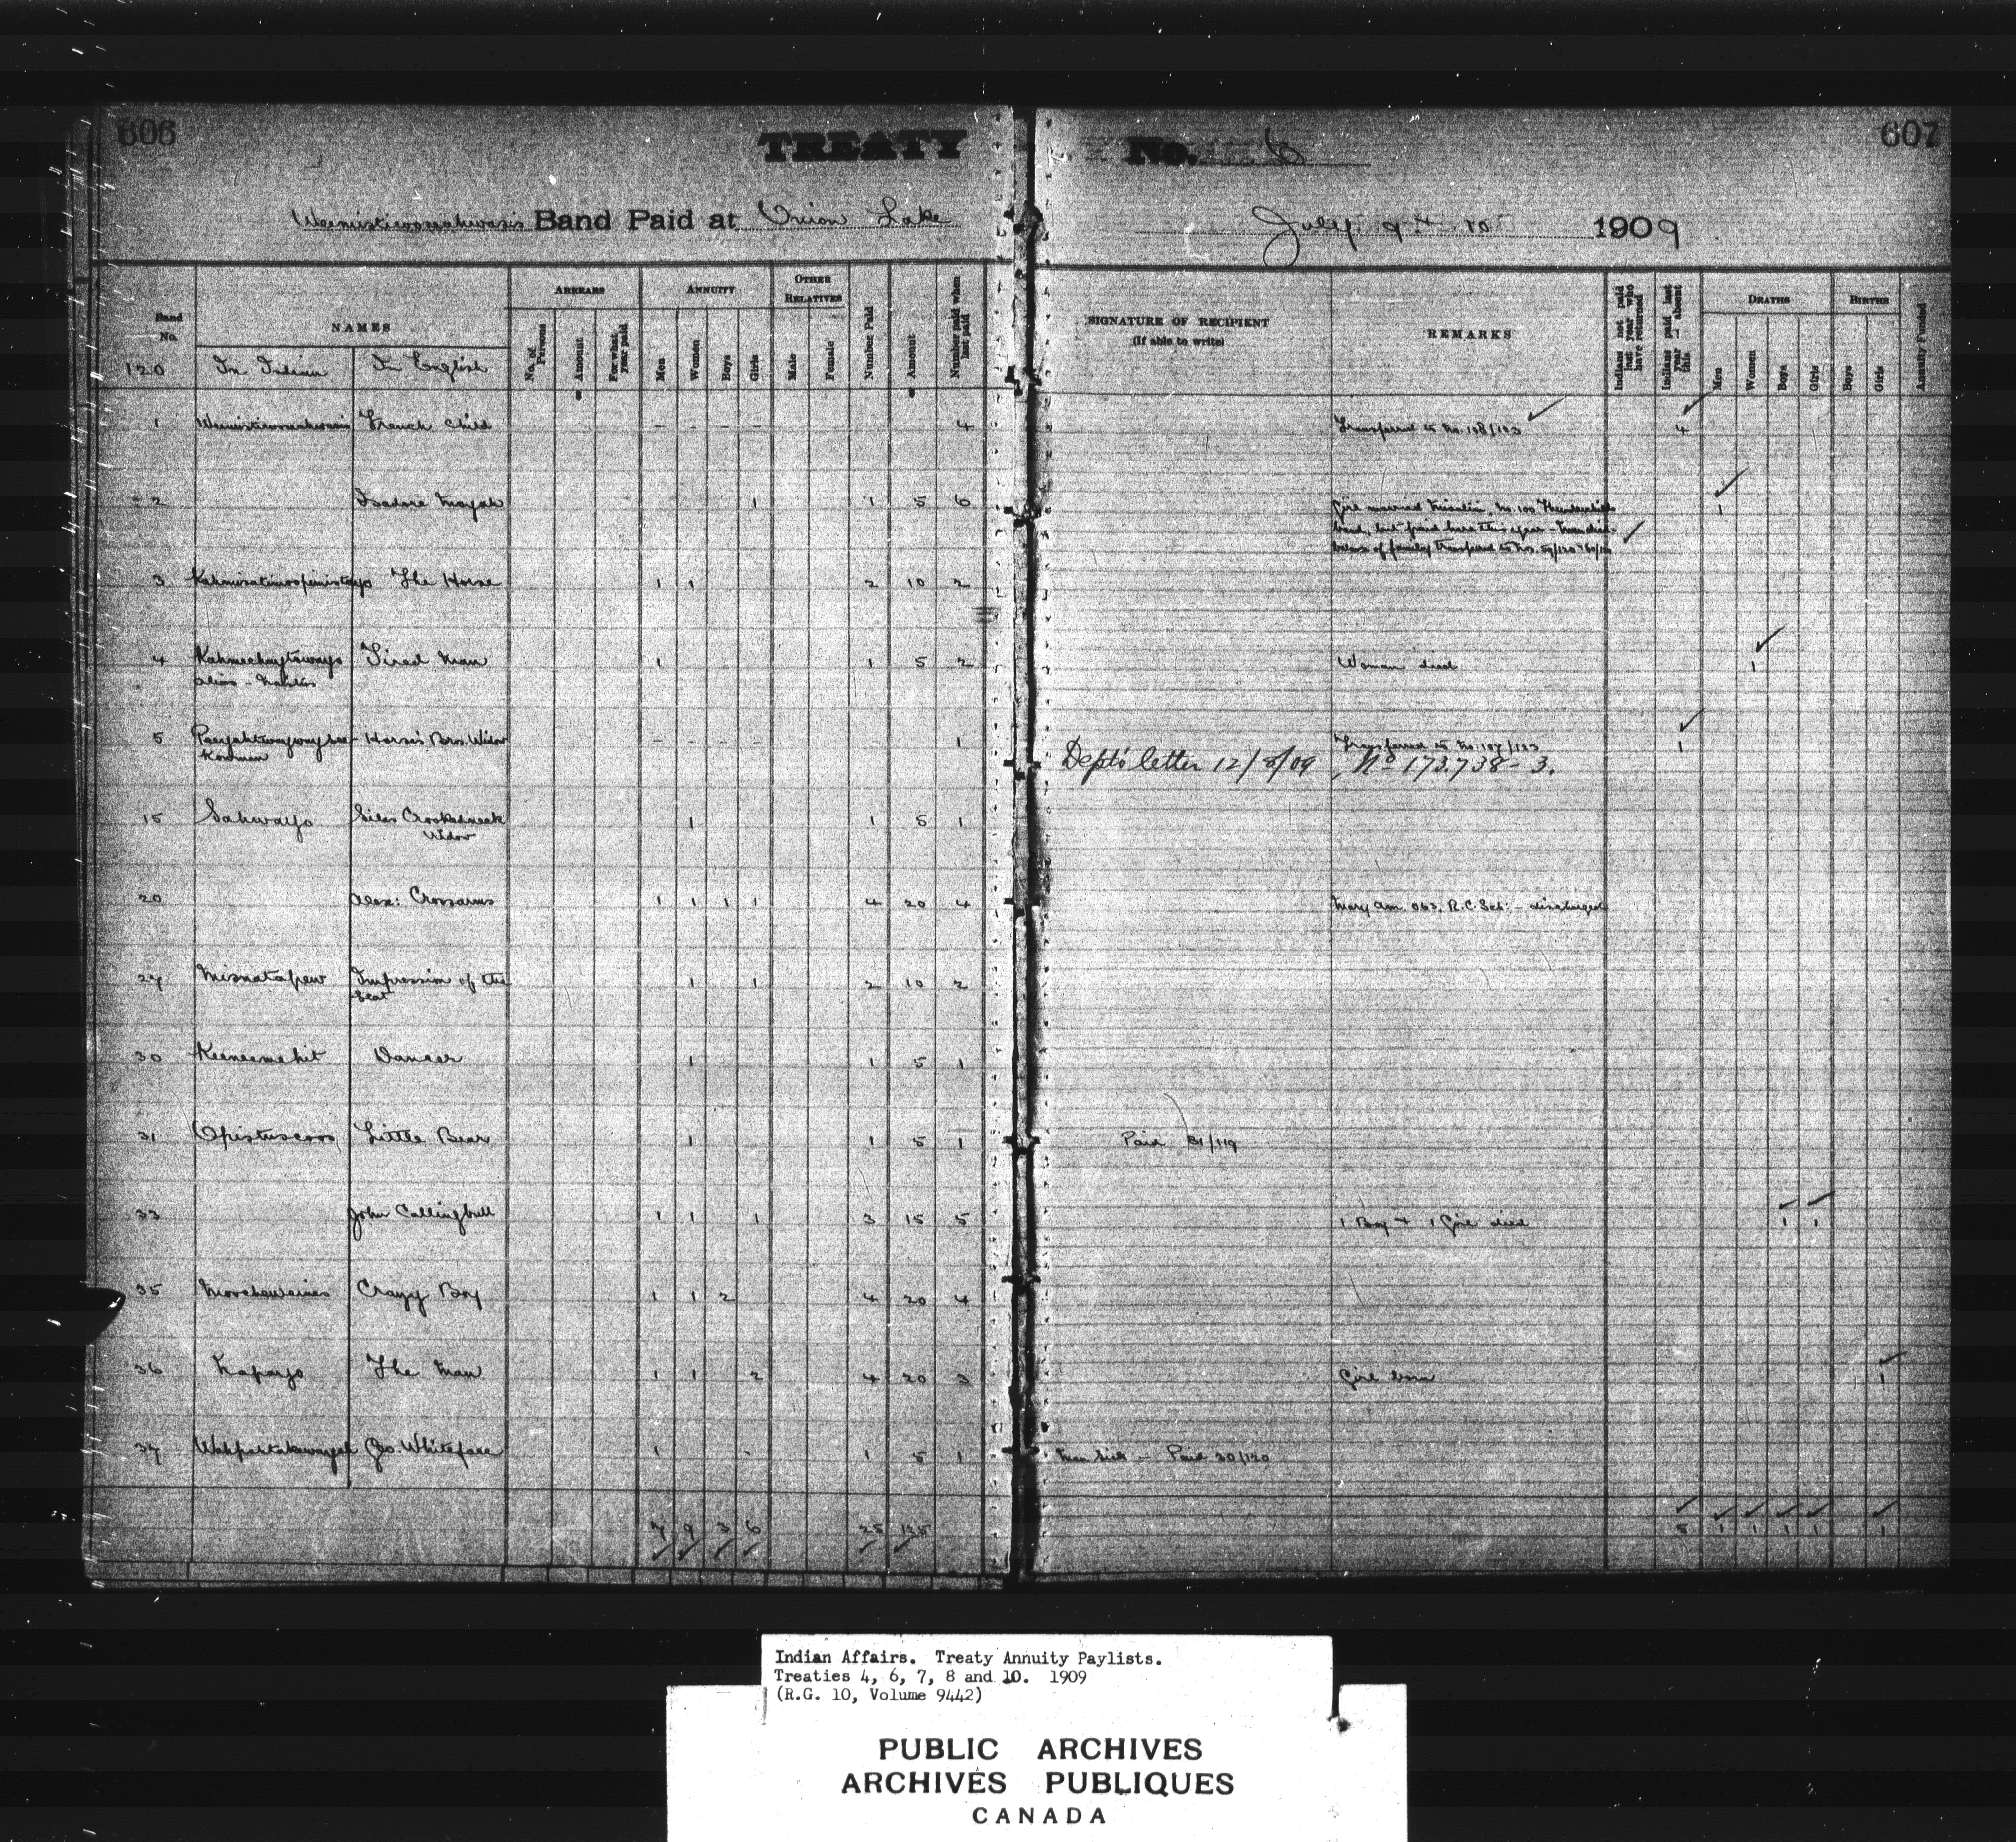 606
TREATY
No. 6
607
Weemisticooseahwasis Band Paid at Onion Lake
July 9 & 10 1909
Band No.
NAMES
ARREARS
ANNUITY
OTHER RELATIVES
No. of Persons
Amount
For what year paid
Men
Women
Boys
Girls
Male
Female
Number Paid
Amount
Number paid when last paid
SIGNATURE OF RECIPIENT
(If able to write)
REMARKS
Indians not paid last year who have returned
Indians paid last year - absent this
DEATHS
Men
Women
Boys
Girls
BIRTHS
Boys
Girls
Annuity Funded
120 In Indian In English
1 Weemisticooseahwasis French Child - - - - 4 Transferred to No. 108/123 4
2 Isadore Mayah 1 1 5 6 Girl married No. 100 Thunderchild's 1
band, but paid here this year - Man died.
balance of family transferred to Nos. 59/120 & 60/120
3 The Horse 1 1 2 10 2
4 Kahmeechaytawayo Tired Man 1 1 5 2 Woman died 1
alias -
5 Horse's Bro. Widow - - - - 1 Transferred to No. 107/123 1
Dept's letter 12/8/09 No 173.738-3.
15 Sahwayo Silas Crookedneck 1 1 5 1
Widow
20 Alex: Crossarms 1 1 1 1 4 20 4 Mary Ann 063. R.C. Sch: - discharged
27 Misnatapew Impression of the 1 1 2 10 2
Seat
30 Keeneemehit Dancer 1 1 5 1
31 Opistuscoos Little Bear 1 1 5 1 Paid 31/119
33 John Callingbull 1 1 1 3 15 5 1 Boy & 1 Girl died 1 1
35 Moochaweines Crazy Boy 1 1 2 4 20 4
36 Napayo The Man 1 1 2 4 20 3 Girl born 1
37 Geo. Whiteface 1 - 1 5 1 Man sick - Paid 30/120
7 9 3 6 25 125 5 1 1 1 1 1
Indian Affairs. Treaty Annuity Paylists.
Treaties 4, 6, 7, 8 and 10. 1909
(R.G. 10, Volume 9442)
PUBLIC ARCHIVES
ARCHIVES PUBLIQUES
CANADA